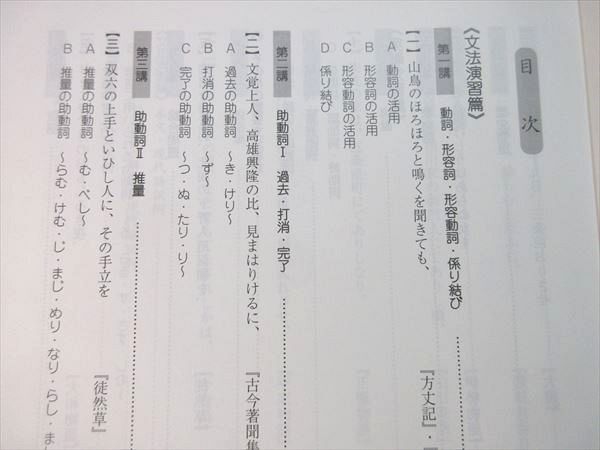 目次
《文法演習篇》
第一講 動詞・形容詞・形容動詞・係り結び
【一】山鳥のほろほろと鳴くを聞きても、『方丈記』・
A 動詞の活用
B 形容詞の活用
C 形容動詞の活用
D 係り結び
第二講 助動詞Ⅰ 過去・打消・完了
【二】文覚上人、高雄興隆の比、見まはりけるに、『古今著聞集
A 過去の助動詞 〜き・けり〜
B 打消の助動詞 〜ず〜
C 完了の助動詞 〜つ・ぬ・たり・り〜
第三講 助動詞Ⅱ 推量
【三】双六の上手といひし人に、その手立を『徒然草』
A 推量の助動詞 〜む・べし〜
B 推量の助動詞 〜らむ・けむ・じ・まじ・めり・なり・らし・ま